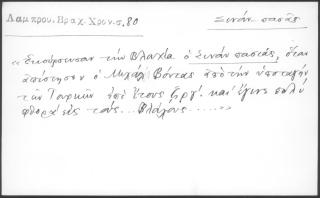 Λάμπρου. Βραχ. Χρον. σ. 80
Σινάν πασᾶς
«Ἐκούρσευσαν τὴν Βλαχία ὁ Σινάν πασιάς, ὅταν
ἀπίστησεν ὁ Μιχάλ Βόντας ἀπὸ τὴν ὑποταγήν
τῶν Τουρκῶν ἐπὶ ἔτους ζργ'. καὶ ἔγινε πολὺ
φθορὰ εἰς τούς... Βλάχους.....»